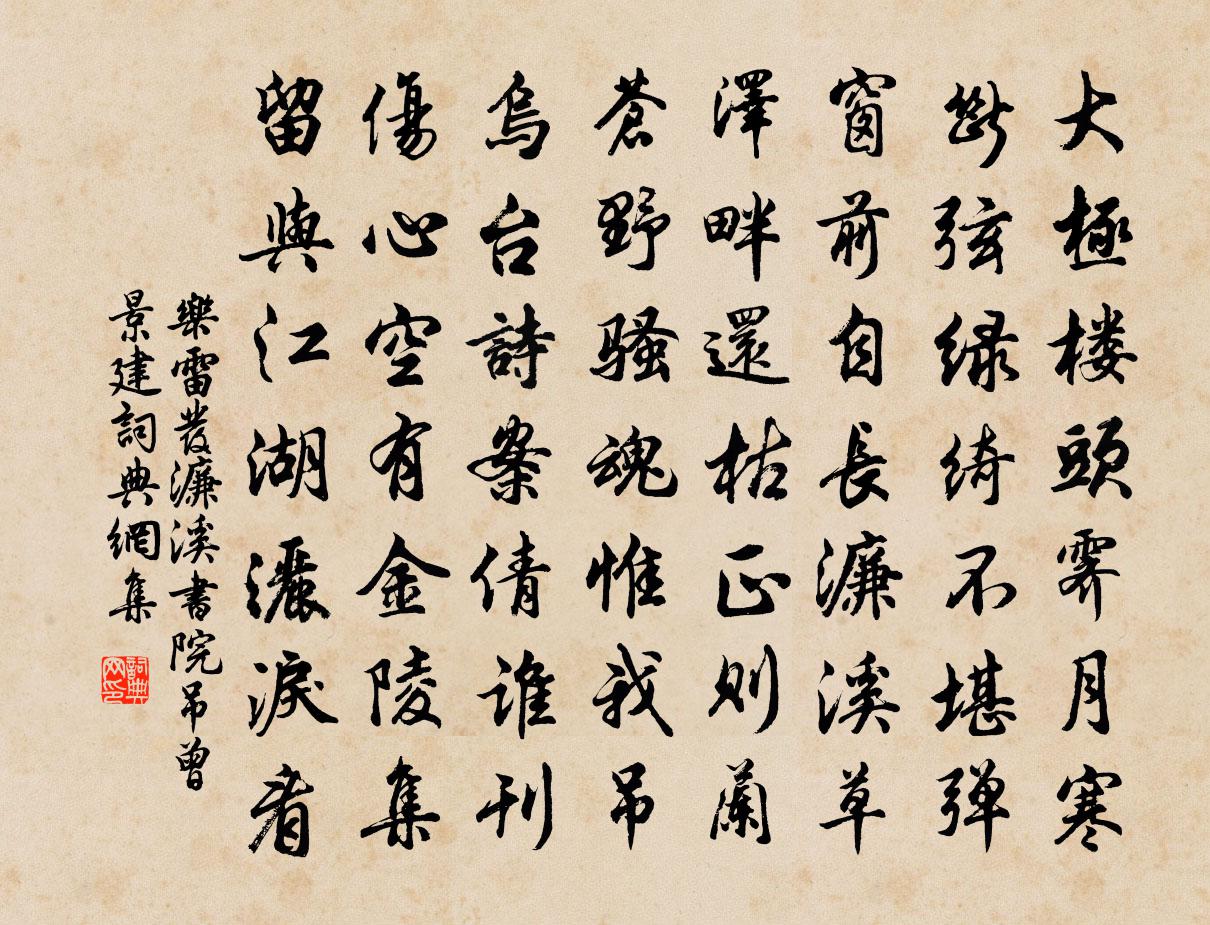 大極楼頭霽月寒
斷弦緑綺不堪弹
窗前自長濂溪草
澤畔還枯正則蘭
蒼野騷魂惟我吊
烏台詩案倩誰刊
傷心空有金陵集
留與江湖灑淚看
樂雷發濂溪書院吊曾
景建詞典網集
詞典网印